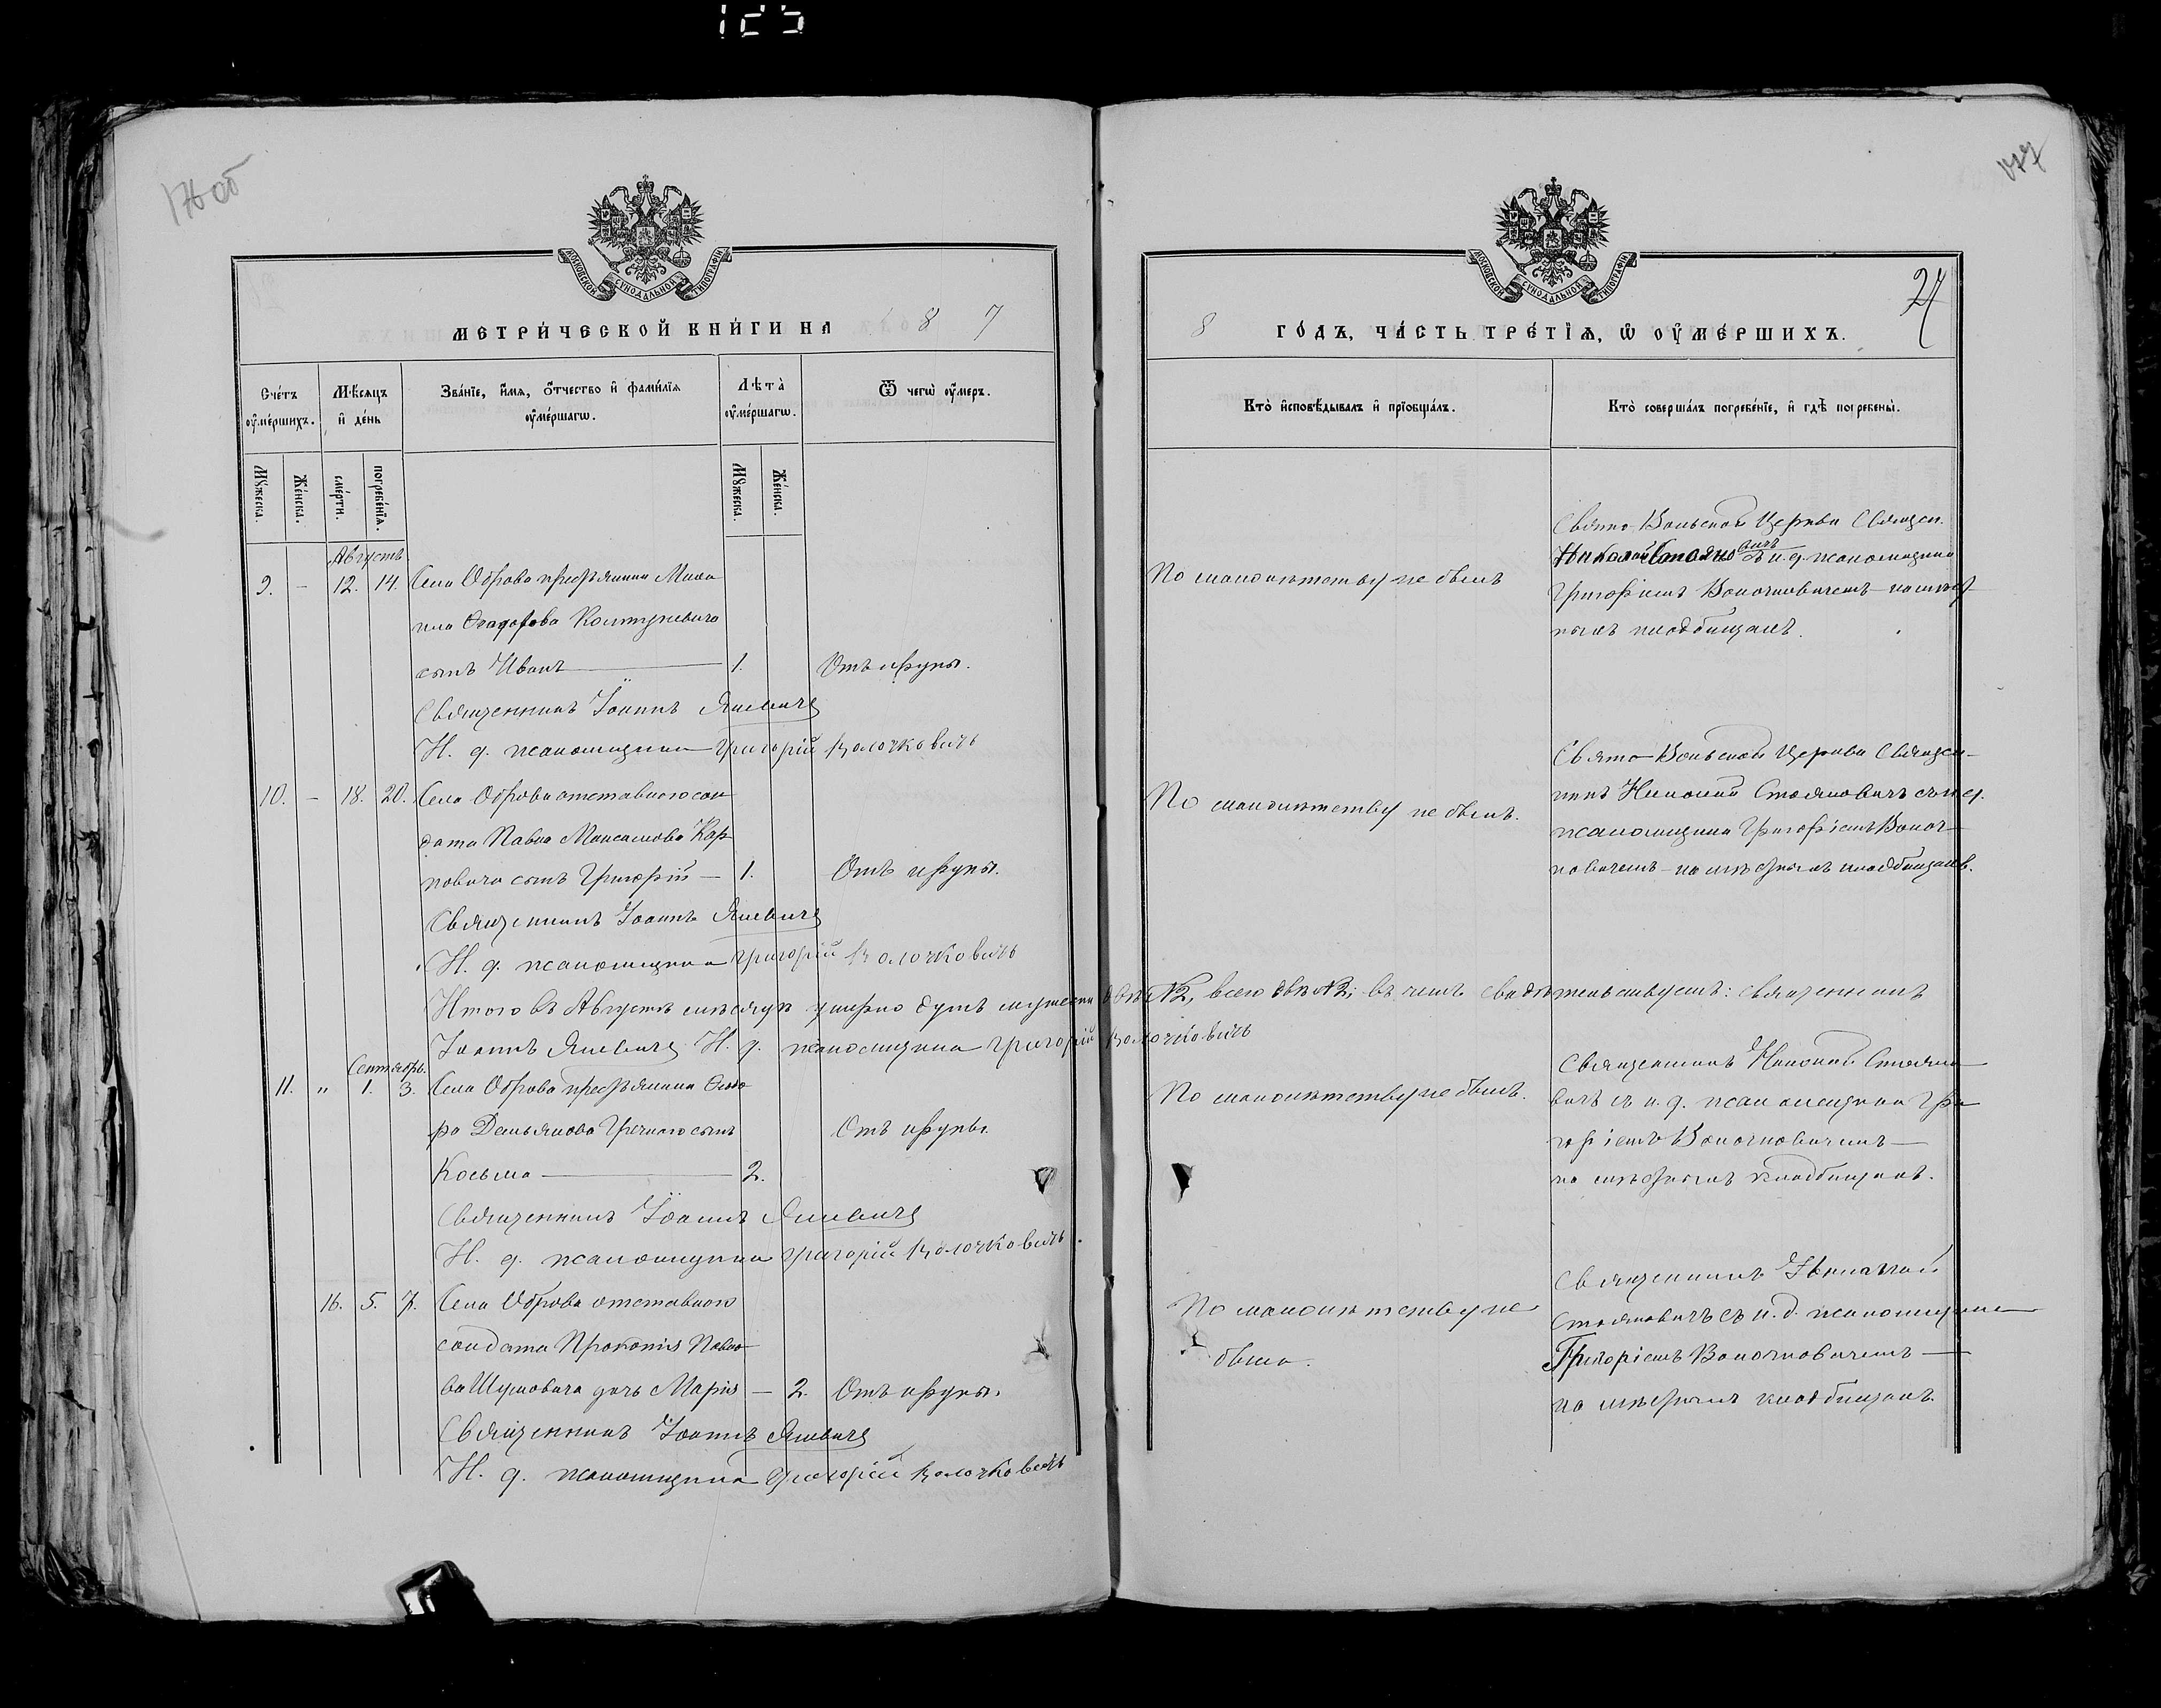 125
176об
177
24
МОСКОВСКОЙ СѴНОДАЛЬНОЙ ТИПОГРАФІИ
МОСКОВСКОЙ СѴНОДАЛЬНОЙ ТИПОГРАФІИ
МЕТРИ́ЧЕСКОЙ КНИ́ГИ НА 8 7
8 ГО́ДЪ, ЧА́СТЬ ТРЕ́ТІѦ, Ѡ ОУ҆МЕ́РШИХЪ.
Сче́тъ оу҆ме́ршихъ.
Мѣ́сѧцъ и҆ де́нь
Зва́нїе, и҆́мѧ, ѻ҆́тчество и҆ фами́лїѧ оу҆ме́ршагѡ.
Лѣ́та оу҆ме́ршагѡ.
Ѿ чегѡ̀ оу҆́меръ.
Кто̀ и҆сповѣ́дывалъ и҆ прїобща́лъ.
Кто̀ соверша́лъ погребе́нїе, и҆ гдѣ̀ погребены̀.
Мꙋ́жеска.
Же́нска.
сме́рти.
погребе́нїѧ.
Мꙋ́жеска.
Же́нска.
Августъ
9. – 12. 14. Села Оброва крестьянина Миха
ила Ѳеодорова Колтуневича
сынъ Иванъ — 1. Отъ крупы.
По малолѣтству не былъ
Свято-Вольской Церкви Священ.
Николай Стояновичъ съ и. д. псаломщика
Григоріемъ Волочковичемъ на мѣст
номъ кладбищѣ.
Священникъ Іоаннъ Яневичъ
И. д. псаломщика Григорій Волочковичъ
10. – 18. 20. Села Оброва отставного сол
дата Павла Максимова Кар
повича сынъ Григорій — 1. Отъ крупы.
По малолѣтству не былъ.
Свято-Вольской Церкви Священ-
никъ Николай Стояновичъ съ и. д.
псаломщика Григоріемъ Волоч-
ковичемъ – на мѣстномъ кладбищѣ.
Священникъ Іоаннъ Яневичъ
И. д. псаломщика Григорій Волочковичъ
Итого въ Августѣ мѣсяцѣ умерло душъ мужеска двѣ 2, всего двѣ 2; въ чемъ свидѣтельствуемъ: священникъ
Іоаннъ Яневичъ И. д. псаломщика Григорій Волочковичъ
Сентябрь.
11. " 1. 3. Села Оброва крестьянина Ѳедо
ра Демьянова Гречнаго сынъ
Косьма — 2.
Отъ крупы.
По малолѣтству не былъ.
Священникъ Николай Стояно
вичъ съ и. д. псаломщика Гри
горіемъ Волочковичемъ —
на мѣстномъ кладбищѣ.
Священникъ Іоаннъ Яневичъ
И. д. псаломщика Григорій Волочковичъ.
16. 5. 7. Села Оброва отставного
солдата Прокопія Павло
ва Шумовича дочь Марія — 2. Отъ крупы.
По малолѣтству не
была.
Священникъ Николай
Стояновичъ съ и. д. псаломщика
Григоріемъ Волочковичемъ —
на мѣстномъ кладбищѣ.
Священникъ Іоаннъ Яневичъ
И. д. псаломщика Григорій Волочковичъ